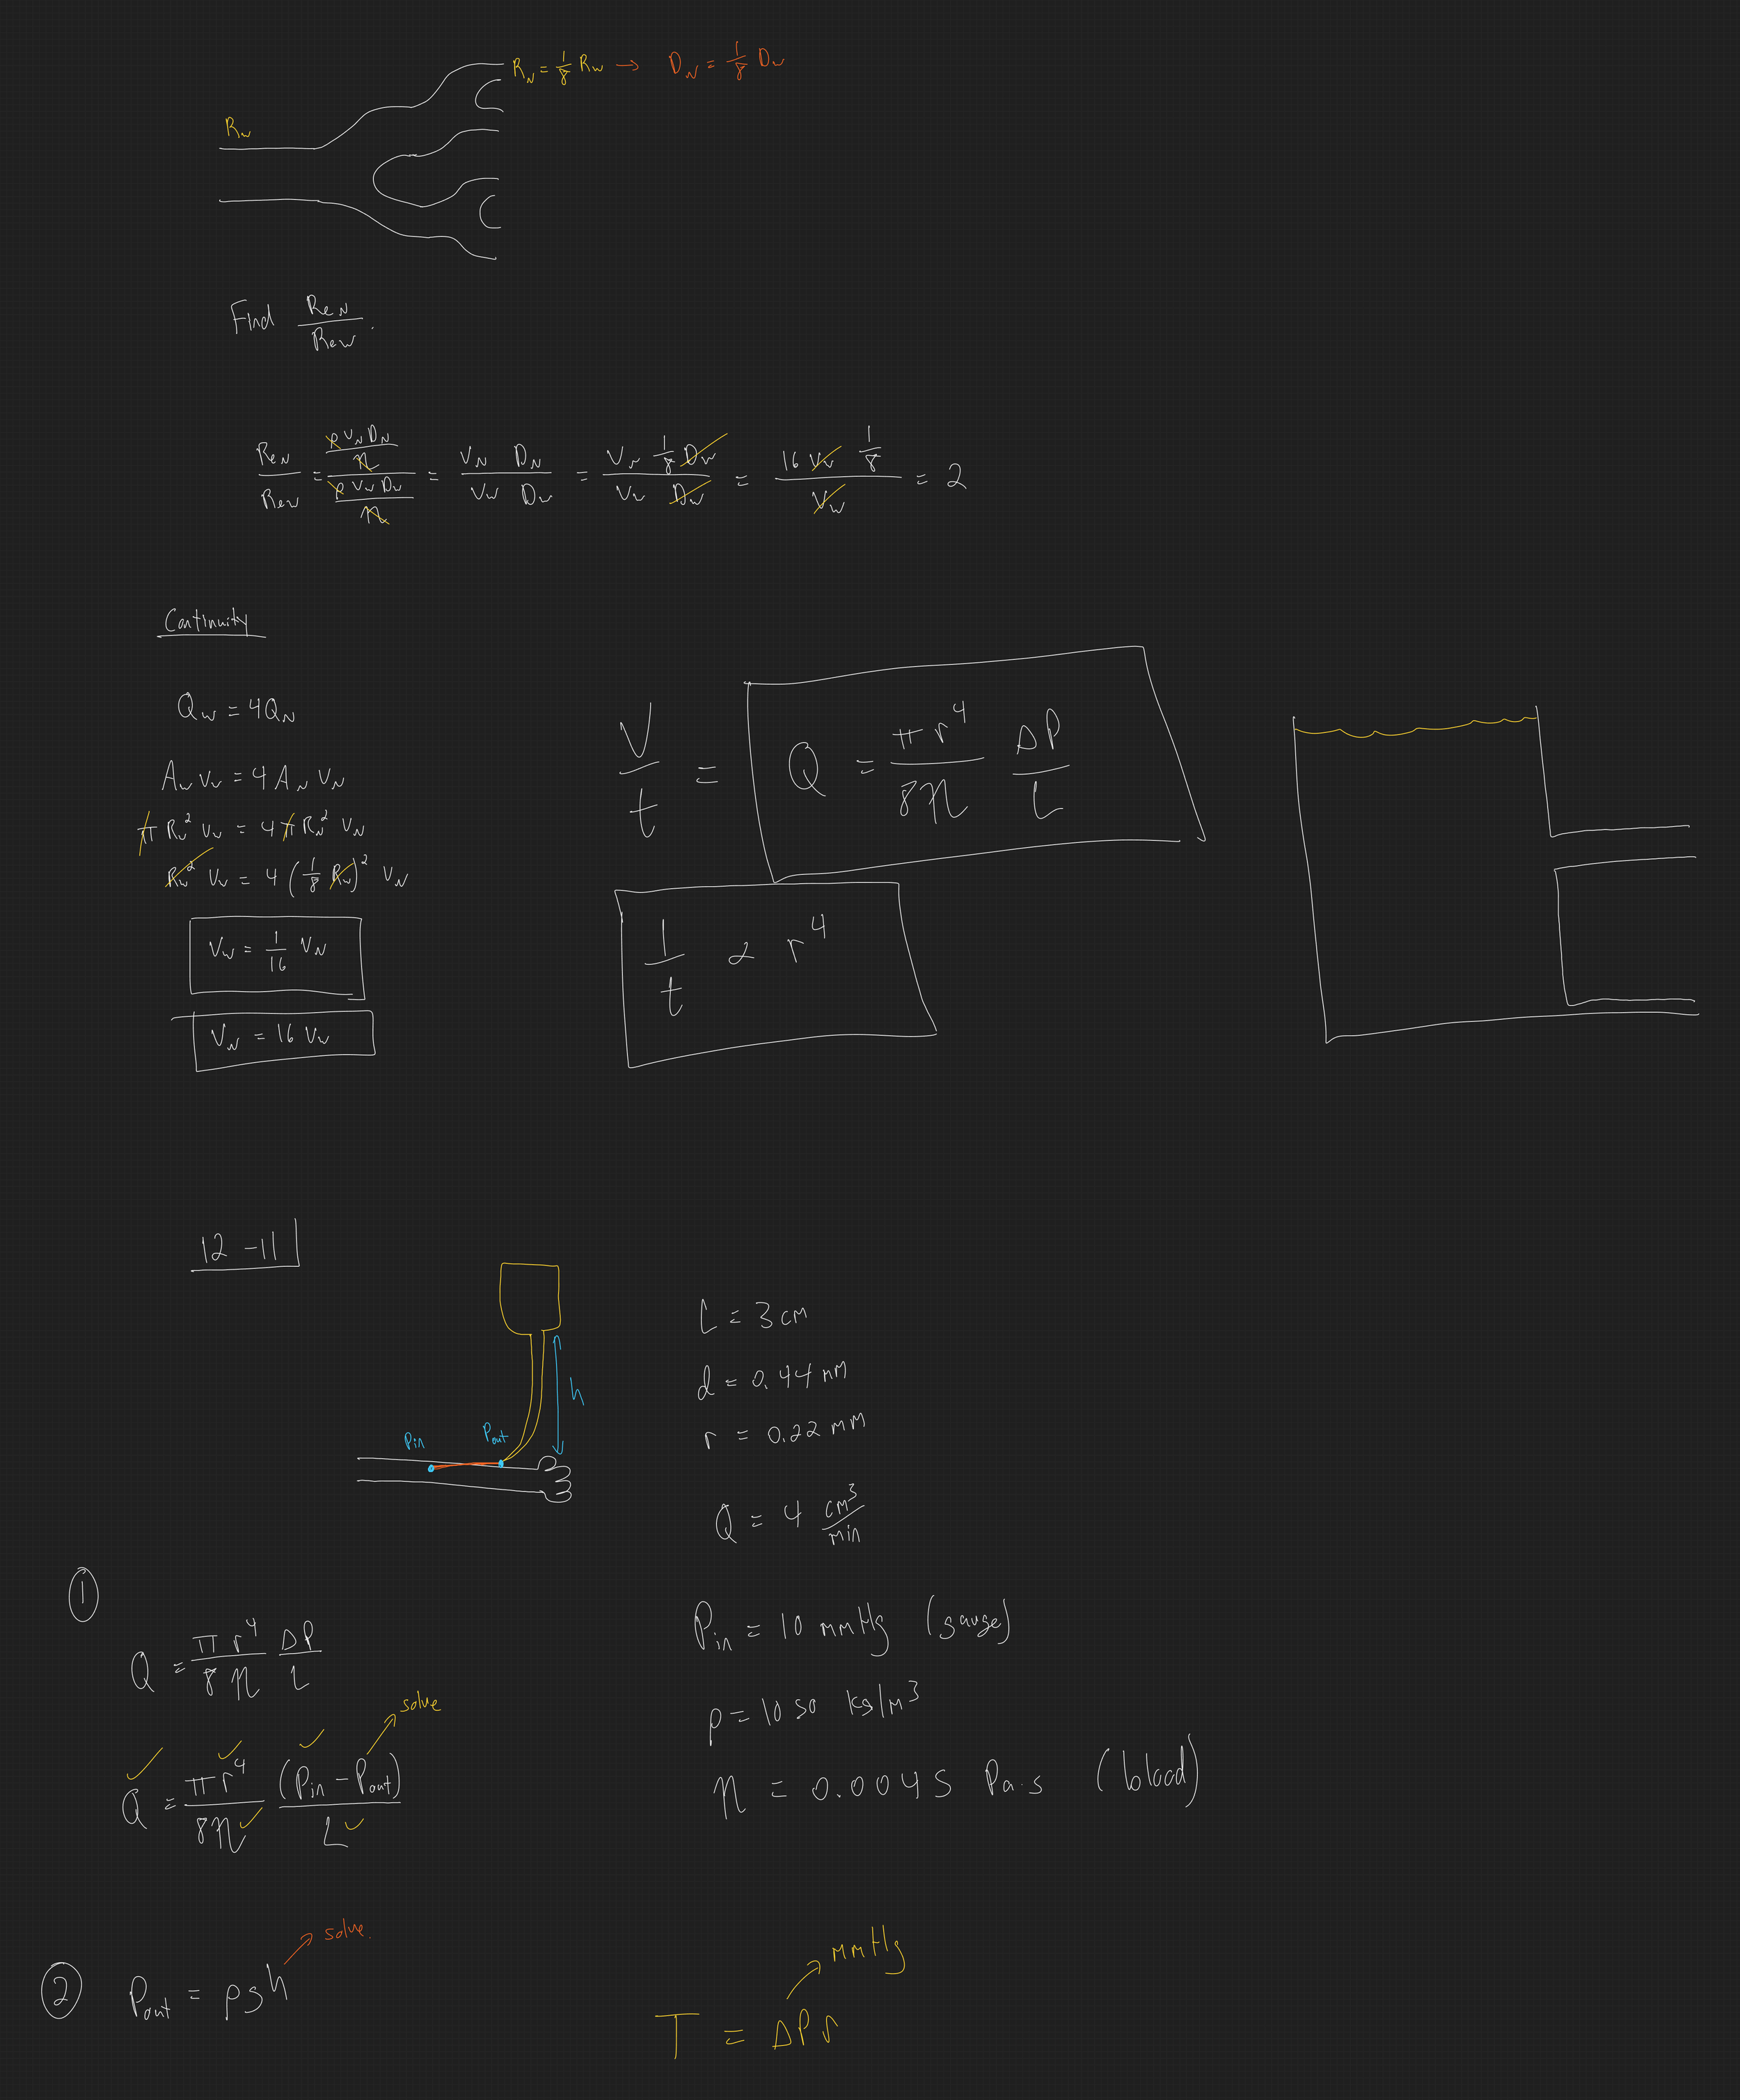 R_N = 1/8 R_w → D_N = 1/8 D_w
R_w
Find Re_N / Re_w.
Re_N / Re_w = (ρ V_N D_N / η) / (ρ V_w D_w / η) = V_N D_N / V_w D_w = V_N 1/8 D_w / V_w D_w = 16 V_w 1/8 / V_w = 2
Continuity
Q_w = 4Q_N
A_w V_w = 4 A_N V_N
π R_w² V_w = 4 π R_N² V_N
R_w² V_w = 4 (1/8 R_w)² V_N
V_w = 1/16 V_N
V_N = 16 V_w
V/t = Q = π r⁴ / 8η ΔP / L
1/t α r⁴
12-11
h
P_in
P_out
L = 3 cm
d = 0.44 mm
r = 0.22 mm
Q = 4 cm³/min
P_in = 10 mmHg (gauge)
ρ = 1050 kg/m³
η = 0.0045 Pa·s (blood)
①
Q = π r⁴ / 8 η ΔP / L
solve
Q = π r⁴ / 8η (P_in - P_out) / L
solve.
② P_out = ρgh
mmHg
T = ΔP r